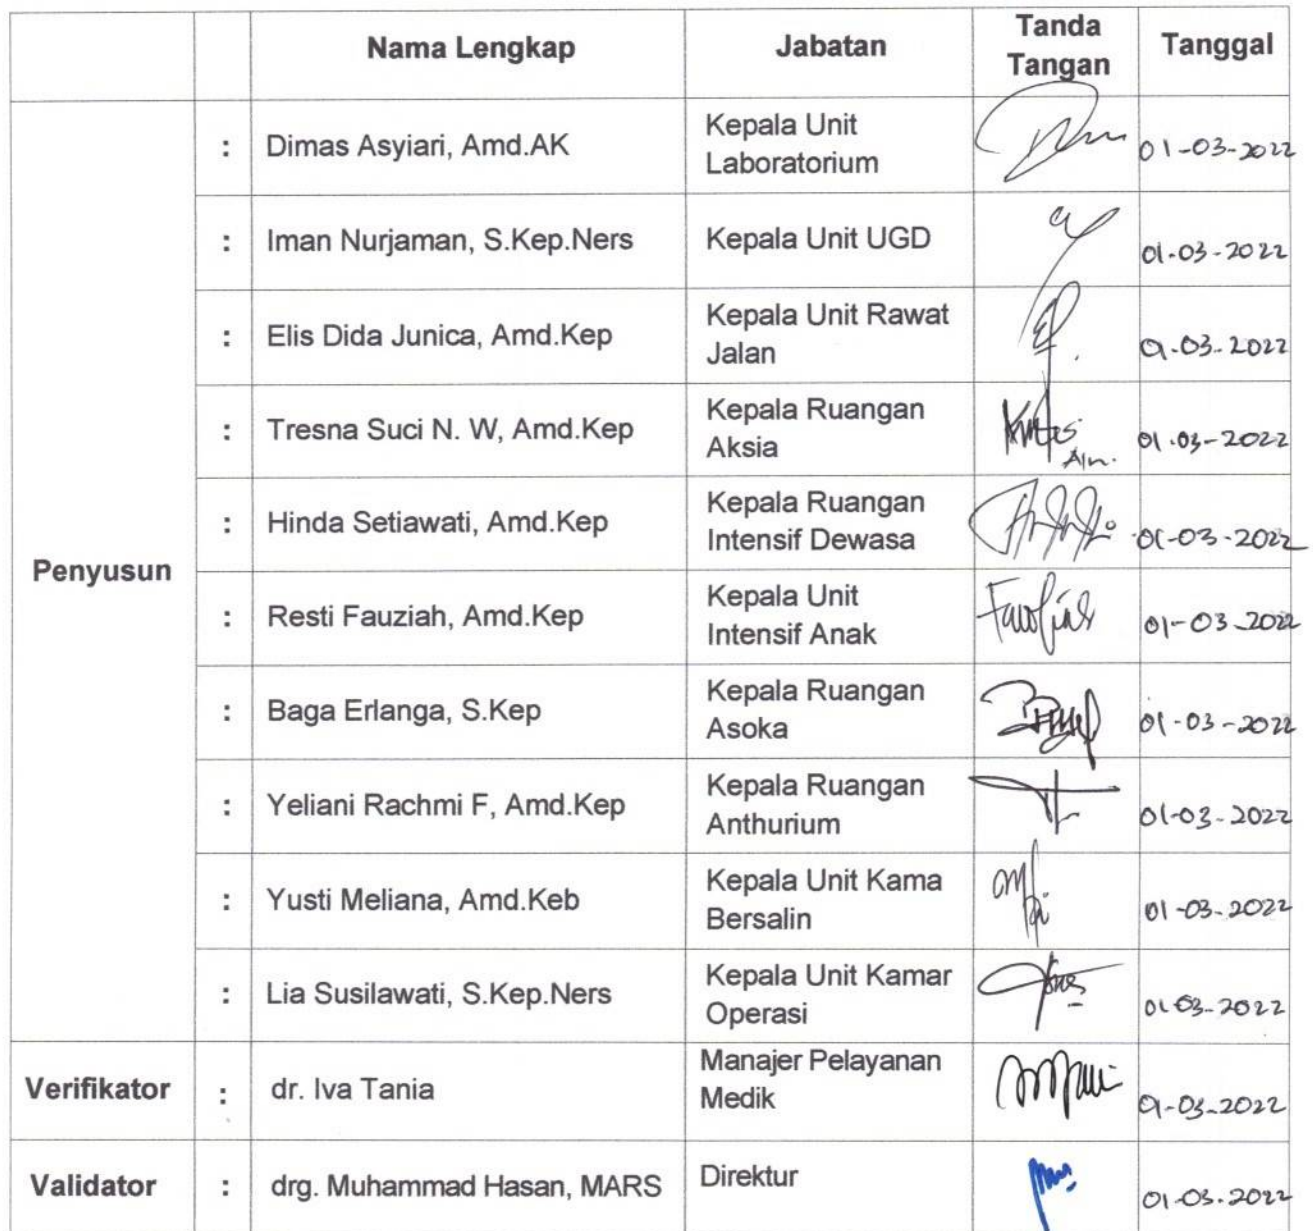 Nama Lengkap Jabatan Tanda Tangan Tanggal
Penyusun
: Dimas Asyiari, Amd.AK Kepala Unit Laboratorium 01-03-2022
: Iman Nurjaman, S.Kep.Ners Kepala Unit UGD 01-03-2022
: Elis Dida Junica, Amd.Kep Kepala Unit Rawat Jalan 01-03-2022
: Tresna Suci N. W, Amd.Kep Kepala Ruangan Aksia 01-03-2022
: Hinda Setiawati, Amd.Kep Kepala Ruangan Intensif Dewasa 01-03-2022
: Resti Fauziah, Amd.Kep Kepala Unit Intensif Anak 01-03-2022
: Baga Erlanga, S.Kep Kepala Ruangan Asoka 01-03-2022
: Yeliani Rachmi F, Amd.Kep Kepala Ruangan Anthurium 01-03-2022
: Yusti Meliana, Amd.Keb Kepala Unit Kama Bersalin 01-03-2022
: Lia Susilawati, S.Kep.Ners Kepala Unit Kamar Operasi 01-03-2022
Verifikator : dr. Iva Tania Manajer Pelayanan Medik 01-03-2022
Validator : drg. Muhammad Hasan, MARS Direktur 01-03-2022